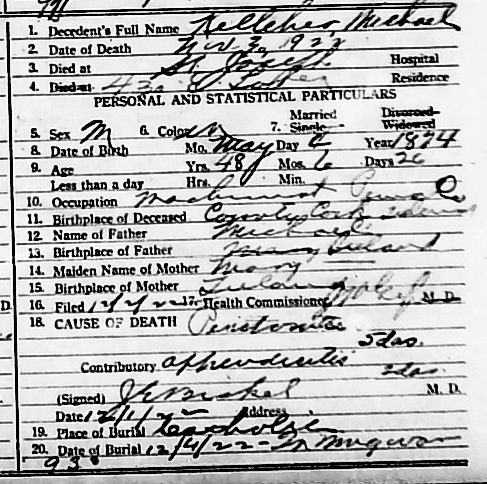 1. Decedent's Full Name Kelleher, Michael
2. Date of Death 1922
3. Died at St Joseph Hospital
4. Died at 43 Residence
PERSONAL AND STATISTICAL PARTICULARS
5. Sex M 6. Color W 7. Married Single Divorced Widowed
8. Date of Birth Mo. May Day 6 Year 1874
9. Age Yrs. 48 Mos. 6 Days 26
Less than a day Hrs. Min.
10. Occupation Machinist
11. Birthplace of Deceased County Cork
12. Name of Father Michael
13. Birthplace of Father Ireland
14. Maiden Name of Mother Mary
15. Birthplace of Mother Ireland
16. Filed 12/2/22 17. Health Commissioner M. D.
18. CAUSE OF DEATH Peritonitis
5 das.
Contributory appendicitis
das.
(Signed) J E Bickel M. D.
Date 12/1/22 Address
19. Place of Burial Catholic
20. Date of Burial 12/4/22
93
D
D.